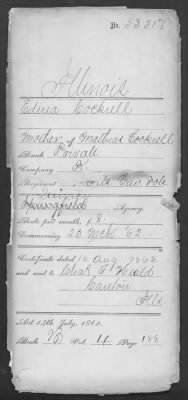 No. 53,517
Illinois
Edina Cockrell
Mother of Mathias Cockrell
Rank: Private
Company K.
Regiment Ills Cav Vols
Springfield Agency.
Rate per month, $8.
Commencing 23 Mch '62
Certificate dated 16 Aug 1865
and sent to Chas T. Heald
Canton
Ills
Act 14th July, 1862.
Book Vol. 4 Page 188